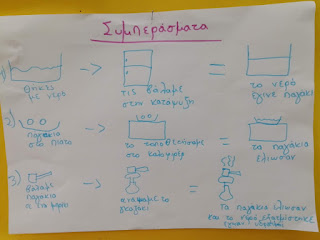 Συμπεράσματα
1)
θήκη
με νερό
τις βάλαμε
στην κατάψυξη
το νερό
έγινε παγάκι
2)
παγάκια
στο πιάτο
το τοποθετήσαμε
στο καλοριφέρ
τα παγάκια
έλιωσαν
3)
βάλαμε
παγάκια
σ' ένα μπρίκι
ανάψαμε το
γκαζάκι
τα παγάκια έλιωσαν
και το νερό εξατμίστηκε